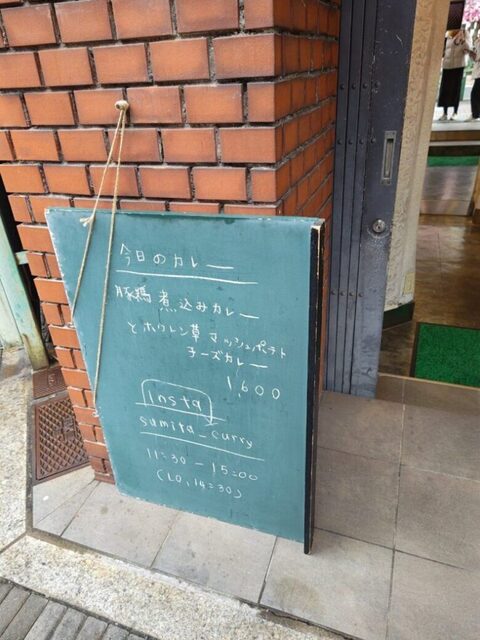 今日のカレー
豚鶏煮込みカレー
とホウレン草マッシュポテト
チーズカレー
1,600
insta
sumita_curry
11:30-15:00
(LO,14:30)